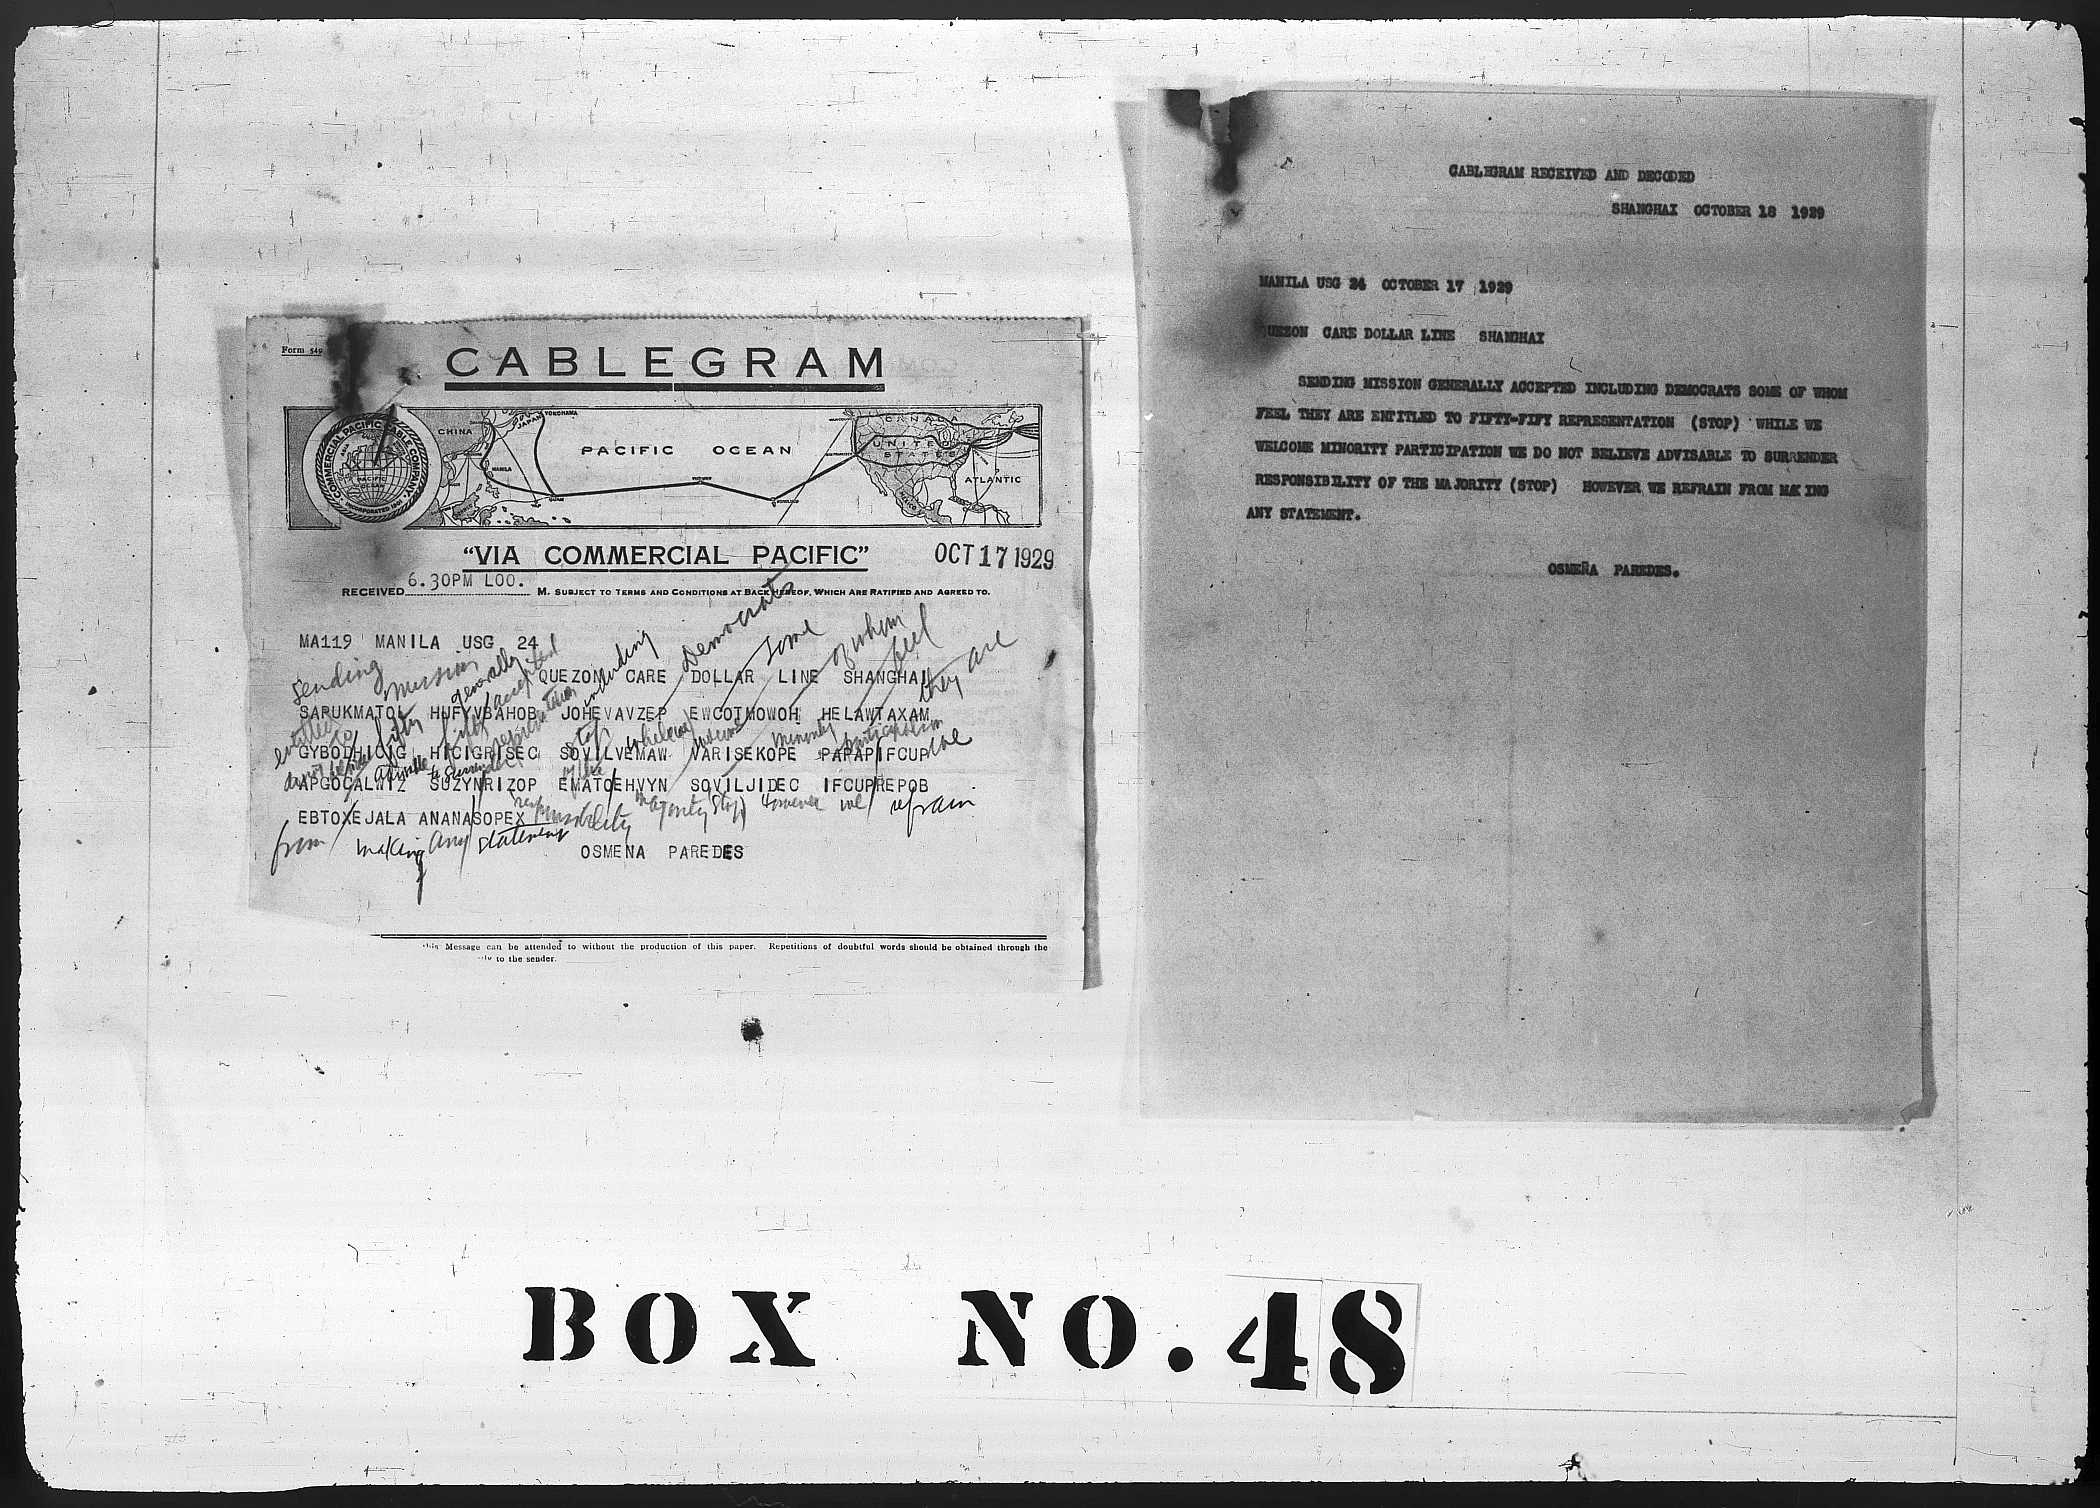 Form 549
CABLEGRAM
COMMERCIAL PACIFIC CABLE COMPANY.
INCORPORATED 1901
PACIFIC OCEAN
CHINA
JAPAN
YOKOHAMA
MANILA
PACIFIC OCEAN
CANADA
UNITED STATES
ATLANTIC
"VIA COMMERCIAL PACIFIC"
OCT 17 1929
RECEIVED 6.30PM LOO. M. SUBJECT TO TERMS AND CONDITIONS AT BACK HEREOF, WHICH ARE RATIFIED AND AGREED TO.
MA119 MANILA USG 24
sending mission generally accepted including Democrats some of whom feel they are
QUEZON CARE DOLLAR LINE SHANGHAI
SAPUKMATOL HUFYVBAHOB JOHEVAVZEP EWCOTMOWOH HELAWTAXAM
entitled to fifty fifty representation stop while we welcome minority participation we
GYBOLHICIG HICIGRISEC SOVILVEMAW VARISEKOPE PAPAPIFCUP
do not believe advisable to surrender of the
APGOCALWIZ SUZYNRIZOP EMATCEHVYN SOVILJIDEC IFCUPREPOB
responsibility majority stop However we refrain
EBTOXEJALA ANANASOPEX
from making any statement
OSMENA PAREDES
this Message can be attended to without the production of this paper. Repetitions of doubtful words should be obtained through the
to the sender.
CABLEGRAM RECEIVED AND DECODED
SHANGHAI OCTOBER 18 1929
MANILA USG 24 OCTOBER 17 1929
QUEZON CARE DOLLAR LINE SHANGHAI
SENDING MISSION GENERALLY ACCEPTED INCLUDING DEMOCRATS SOME OF WHOM
FEEL THEY ARE ENTITLED TO FIFTY-FIFY REPRESENTATION (STOP) WHILE WE
WELCOME MINORITY PARTICIPATION WE DO NOT BELIEVE ADVISABLE TO SURRENDER
RESPONSIBILITY OF THE MAJORITY (STOP) HOWEVER WE REFRAIN FROM MAKING
ANY STATEMENT.
OSMEÑA PAREDES.
BOX NO. 48